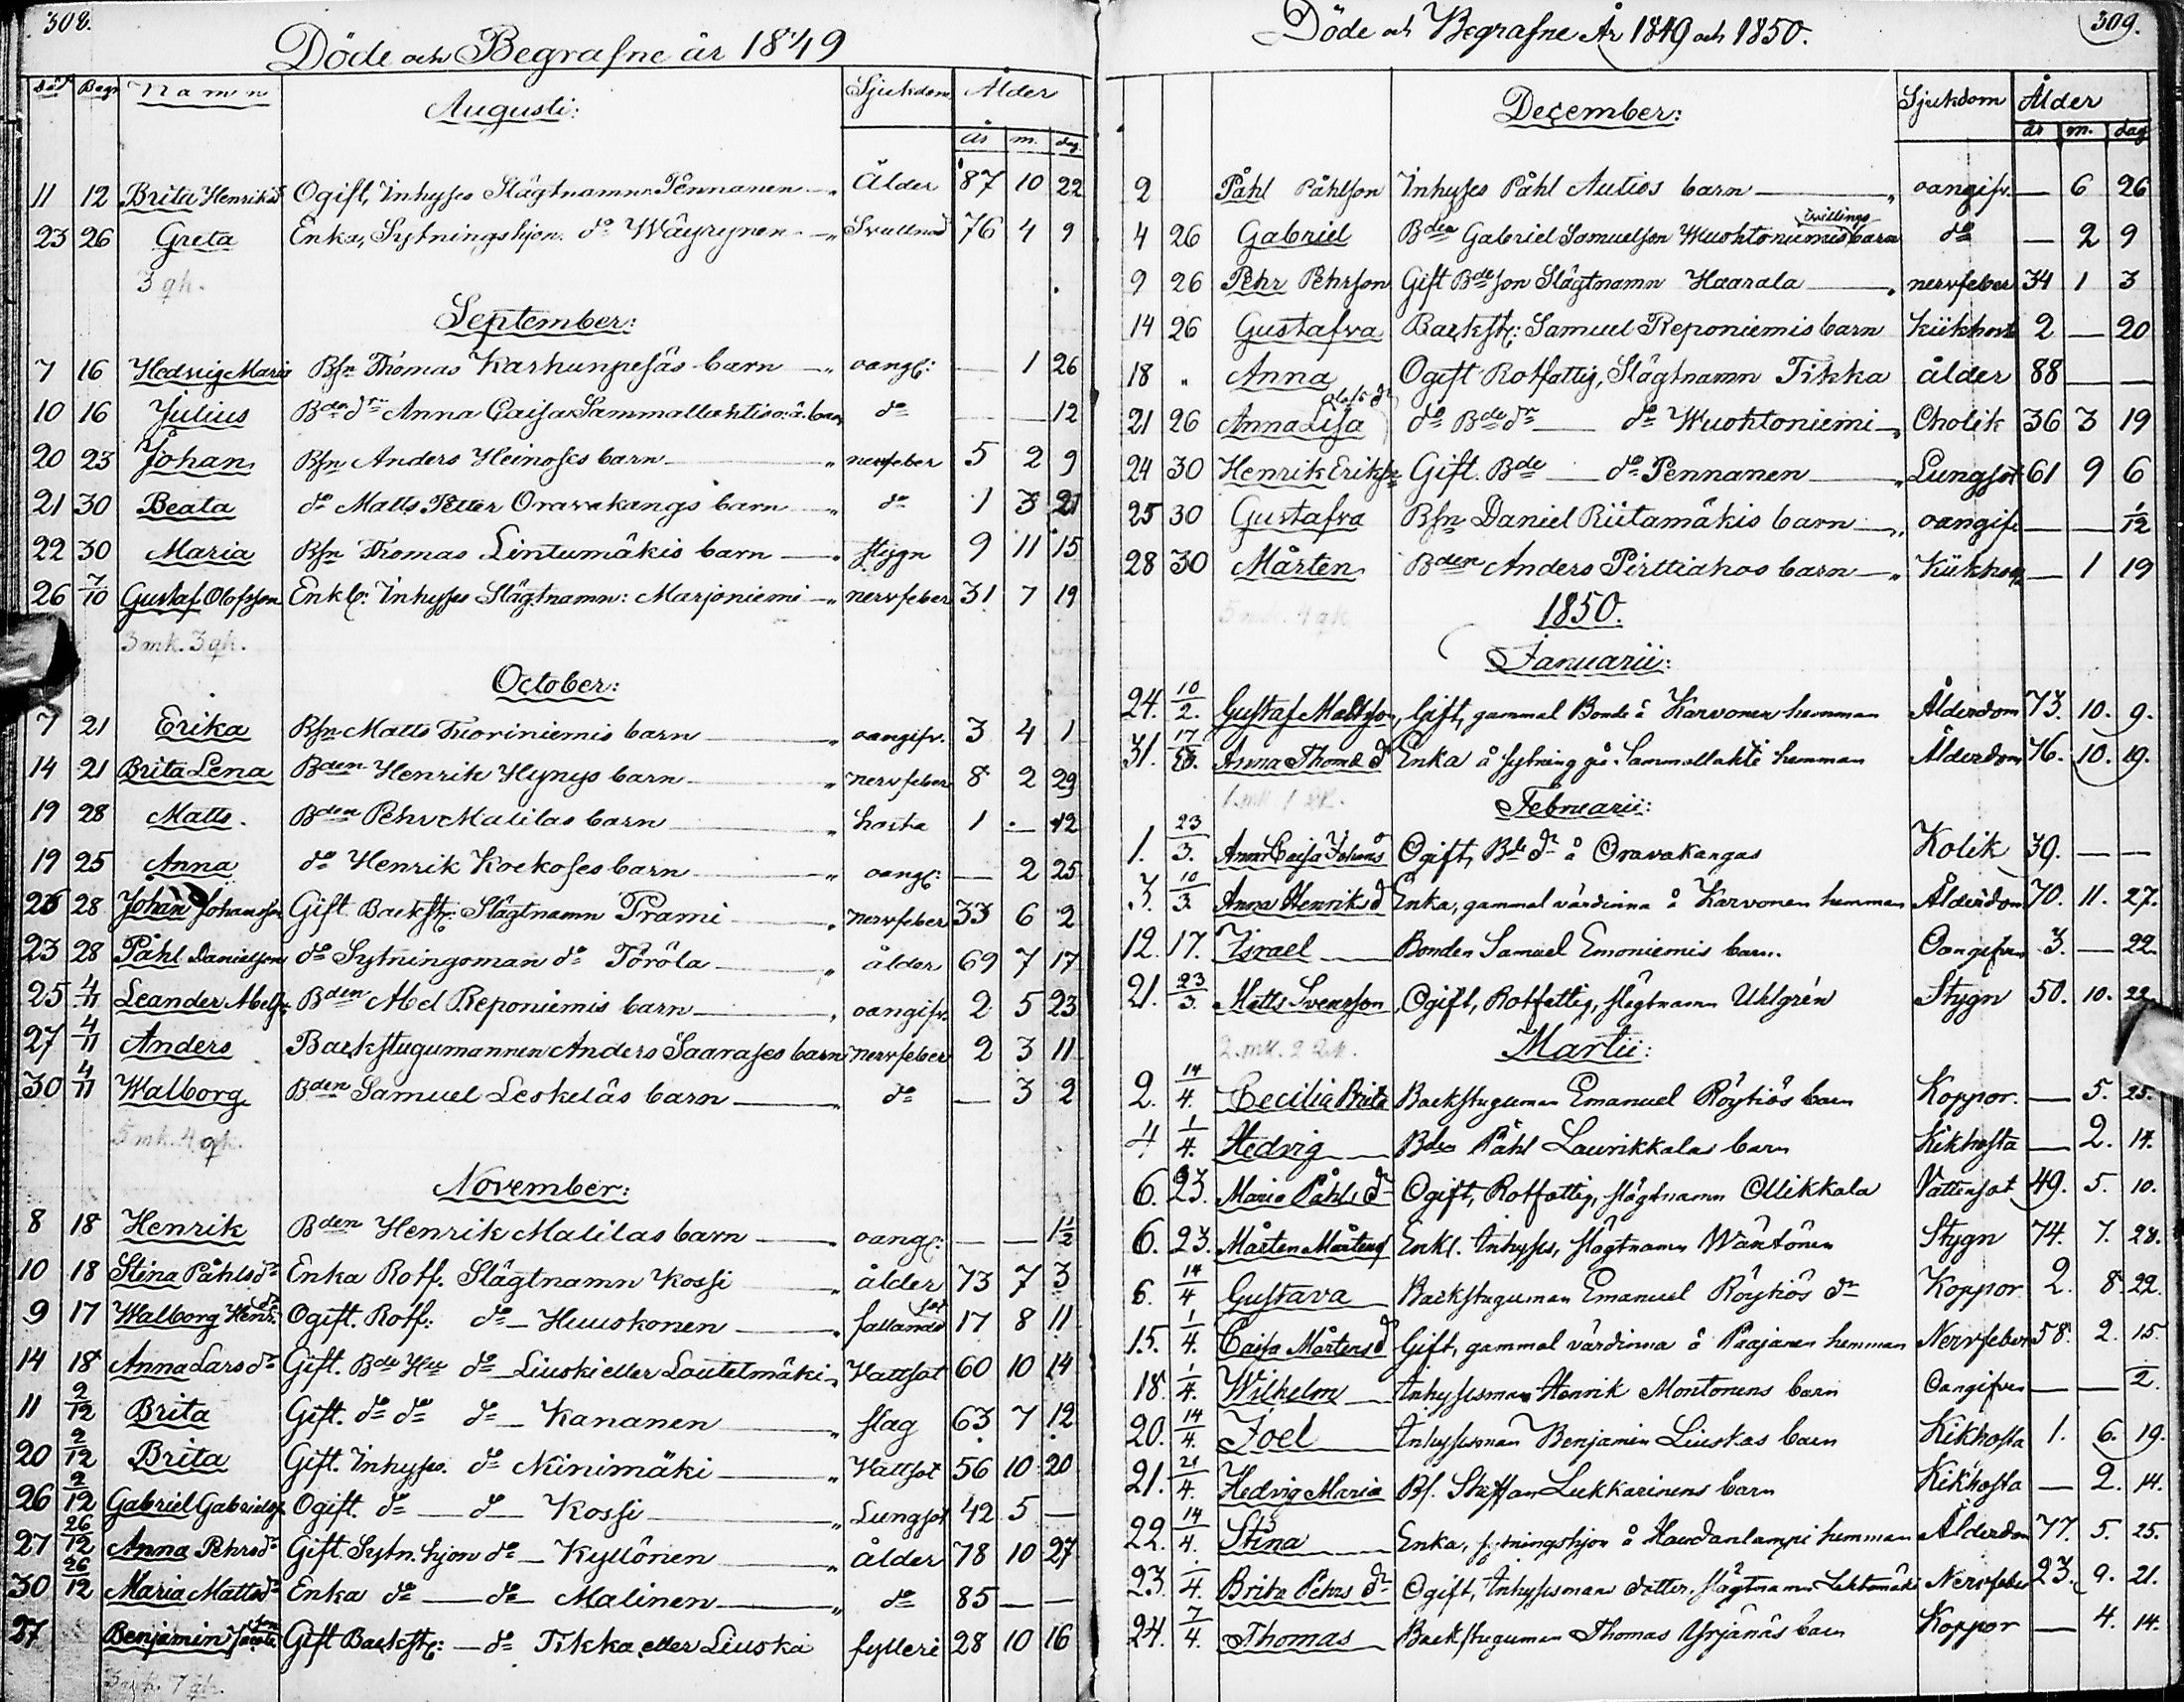 308.
Döde och Begrafne år 1849
död Begr Namn Sjukdom Ålder
Augusti:
år m. dag
11 12 Brita Henriksd Ogift, Inhyses Slägtnamn Pennanen Ålder 87 10 22
23 26 Greta Enka, Sytningshjon do Wäyrynen Svullnad 76 4 9
3 qk.
September:
7 16 Hedvig Maria Bsn Thomas Karhunpesäs barn oangf: — 1 26
10 16 Julius Bde dtr Anna Caisa Sammallahtis o.ä. barn do — — 12
20 23 Johan Bsn Anders Heinoses barn nervfeber 5 2 9
21 30 Beata do Matts Petter Oravakangs barn do 1 3 21
22 30 Maria Bsn Thomas Lintumäkis barn stygn 9 11 15
26 7/10 Gustaf Olofsson Enkl: Inhyses Slägtnamn: Marjoniemi nervfeber 31 7 19
3 mk. 3 qk.
October:
7 21 Erika Bsn Matts Tuoriniemis barn oangifv. 3 4 1
14 21 Brita Lena Bden Henrik Hynys barn nervfeber 8 2 29
19 28 Matts. Bden Pehr Malilas barn hosta 1 — 12
19 25 Anna do Henrik Kockoses barn oangf: — 2 25
26 28 Johan Johansson Gift Backst: Slägtnamn Prami nervfeber 33 6 2
23 28 Påhl Danielson do Sytningsman do Törölä ålder 69 7 17
25 4/11 Leander Abelss. Bden Abel Reponiemis barn oangifv. 2 5 23
27 4/11 Anders Backstugumannen Anders Saarases barn nervfeber 2 3 11
30 4/11 Walborg Bden Samuel Leskeläs barn do — 3 2
5 mk. 4 qk.
November:
8 18 Henrik Bden Henrik Malilas barn oangf: — — 1½
10 18 Stina Påhlsdr Enka Rotf. Slägtnamn Kossi ålder 73 7 3
9 17 Walborg Henr. dr Ogift. Rotf: do Huuskonen fallandesot 17 8 11
14 18 Anna Larsdr Gift. Bde Hu do Liuski eller Lautelmäki Vattsot 60 10 14
11 2/12 Brita Gift. do do do Kananen slag 63 7 12
20 2/12 Brita Gift. Inhyses. do Niinimäki Vattsot 56 10 20
26 2/12 Gabriel Gabrielss Ogift. do do Kossi Lungsot 42 5 —
27 26/12 Anna Pehrsdr Gift. Sytn. hjon do Kyllönen ålder 78 10 27
30 26/12 Maria Mattsdr Enka do do Malinen do 85 — —
27 Benjamin Jacobsson Gift Backst: do Tikka eller Liuska fylleri 28 10 16
3 mk. 7 qk.
309.
Döde och Begrafne År 1849 och 1850.
December:
Sjukdom Ålder
år m. dag
2 Påhl Påhlson Inhyses Påhl Autios barn oangifv. — 6 26
4 26 Gabriel Bden Gabriel Samuelson Wuohtoniemis tvillings barn do — 2 9
9 26 Pehr Pehrson Gift Bdeson Slägtnamn Haarala nervfeber 34 1 3
14 26 Gustafva Backst: Samuel Reponiemis barn Kikhost 2 — 20
18 " Anna Ogift Rotfattig, Slägtnamn Tikka ålder 88 — —
21 26 Anna Lisa Olofsdr do Bde dr do Wuohtoniemi Cholik 36 3 19
24 30 Henrik Eriks Gift. Bde do Pennanen Lungsot 61 9 6
25 30 Gustafva Bsn Daniel Riitamäkis barn oangifv — — 1/12
28 30 Mårten Bden Anders Pirttiahos barn Kikhosta — 1 19
5 mk. 4 qk
1850.
Januarii:
24. 10/2. Gustaf Mattsson, Gift, gammal Bonde å Karvonen hemman Ålderdom 73. 10. 9.
31. 17/2. Anna Thoms d Enka å sytning på Sammallahti hemman Ålderdom 76. 10. 19.
1 mk 1 qk.
Februarii:
1. 23/3. Anna Caisa Johans d Ogift, Bde dr å Oravakangas Kolik 39. — —
3. 10/3. Anna Henriks d Enka, gammal värdinna å Karvonen hemman Ålderdom 70. 11. 27.
12. 17. Israel Bonden Samuel Emoniemis barn. Oangifven 3. — 22.
21. 23/3. Matts Svensson Ogift, Rotfattig, slägtnamn Uhlgrén Stygn 50. 10. 22.
2. mk. 2 qk.
Martii:
2. 14/4. Cecilia Brita Backstuguman Emanuel Röytiös barn Koppor. — 5. 25.
4. 1/4. Hedvig Bden Påhl Laurikkalas barn Kikhosta — 2. 14.
6. 23. Maria Påhls dr Ogift, Rotfattig, slägtnamn Ollikkala Vattensot 49. 5. 10.
6. 23. Mårten Mårtens Enkl. Inhyses, slägtnamn Wäntönen Stygn 74. 7. 28.
6. 14/4 Gustava Backstuguman Emanuel Röytiös dr Koppor 2. 8. 22.
15. 1/4. Caisa Mårtens d Gift, gammal värdinna å Paajanen hemman Nervfeber 58. 2. 15.
18. 1/4. Wilhelm Inhysesman Henrik Montonens barn Oangifven — — 2.
20. 14/4. Joel Inhysesman Benjamin Liuskas barn Kikhosta 1. 6. 19.
21. 21/4. Hedvig Maria Bs. Staffan Lukkarinens barn Kikhosta — 2. 14.
22. 14/4. Stina Enka, sytningshjon å Haudanlampi hemman Ålderdom 77. 5. 25.
23. /4. Brita Pehrs dr Ogift, Inhysesmans dotter, slägtnamn Lehtomäki Nervfeber 23. 9. 21.
24. 7/4. Thomas Backstuguman Thomas Yrjänäs barn Koppor — 4. 14.